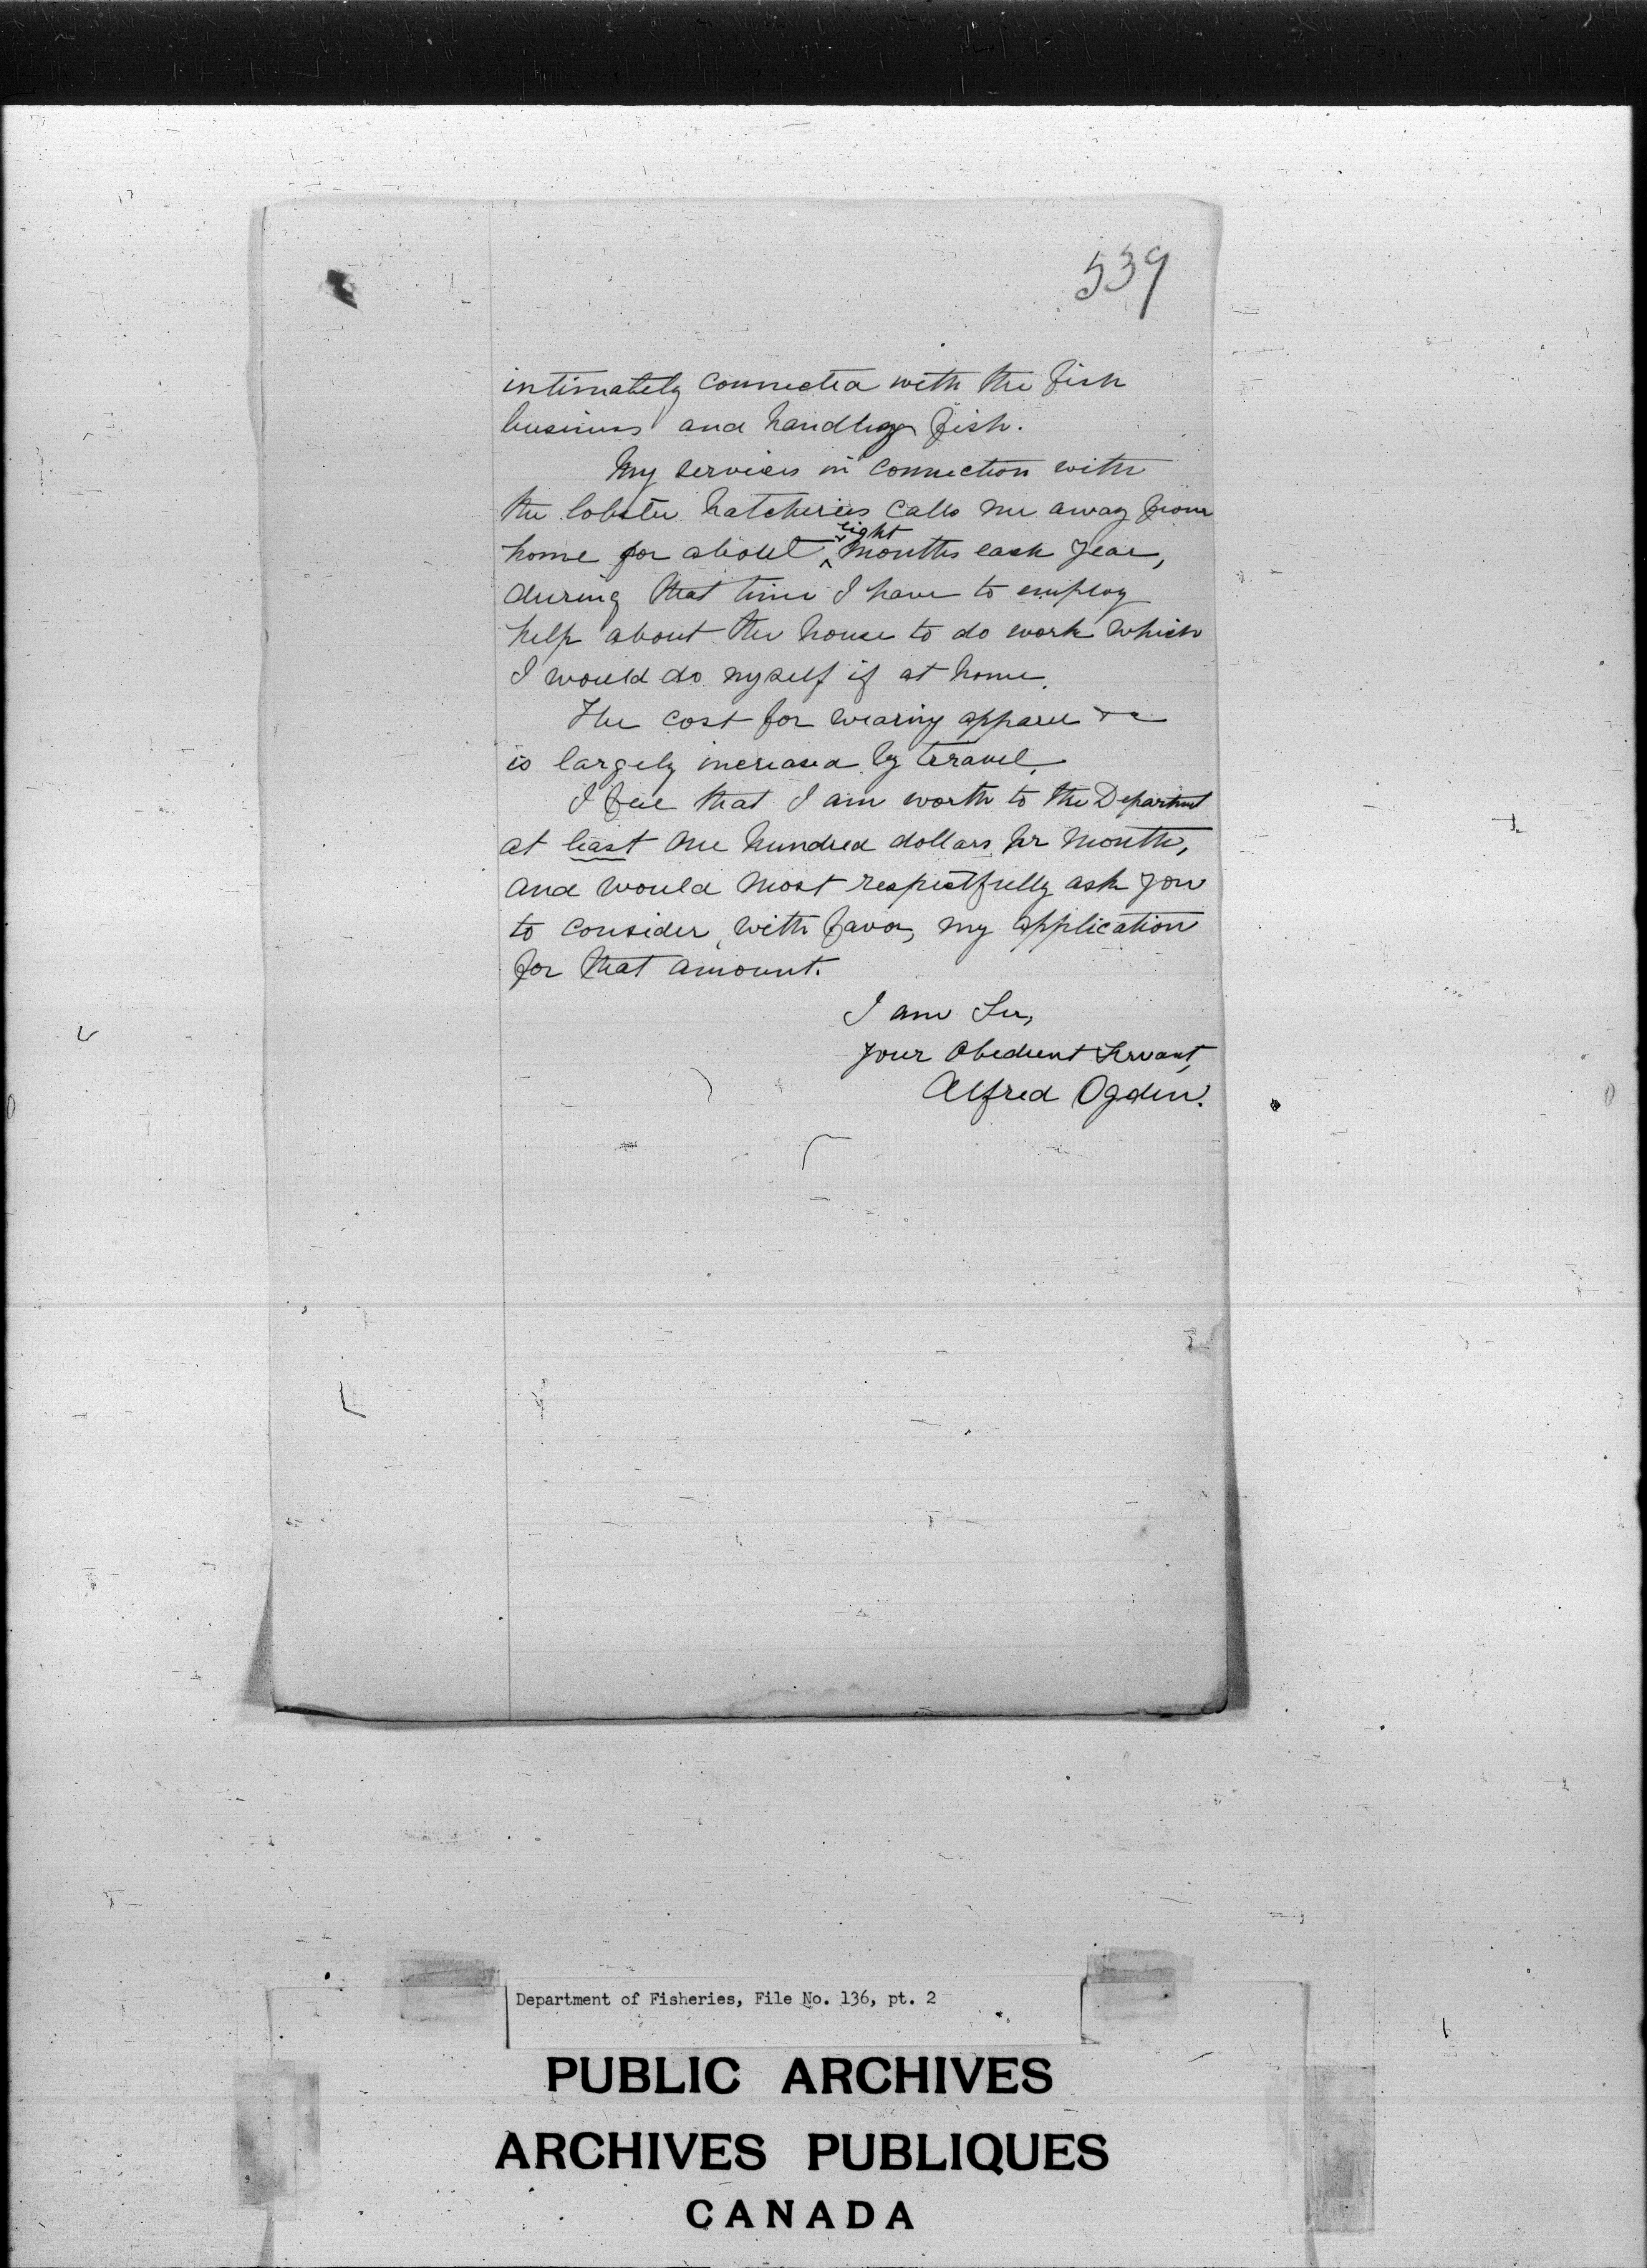 539
intimately connected with the fish
business and handling fish.
My services in connection with
the lobster hatcheries calls me away from
eight
home for about ^ months each year,
during that time I have to employ
help about the house to do work which
I would do myself if at home.
The cost for wearing apparel &c
is largely increased by travel.
I feel that I am worth to the Department
at least one hundred dollars pr month,
and would most respectfully ask you
to consider, with favor, my application
for that amount.
I am Sir,
Your Obedient Servant,
Alfred Ogden.
Department of Fisheries, File No. 136, pt. 2
PUBLIC ARCHIVES
ARCHIVES PUBLIQUES
CANADA